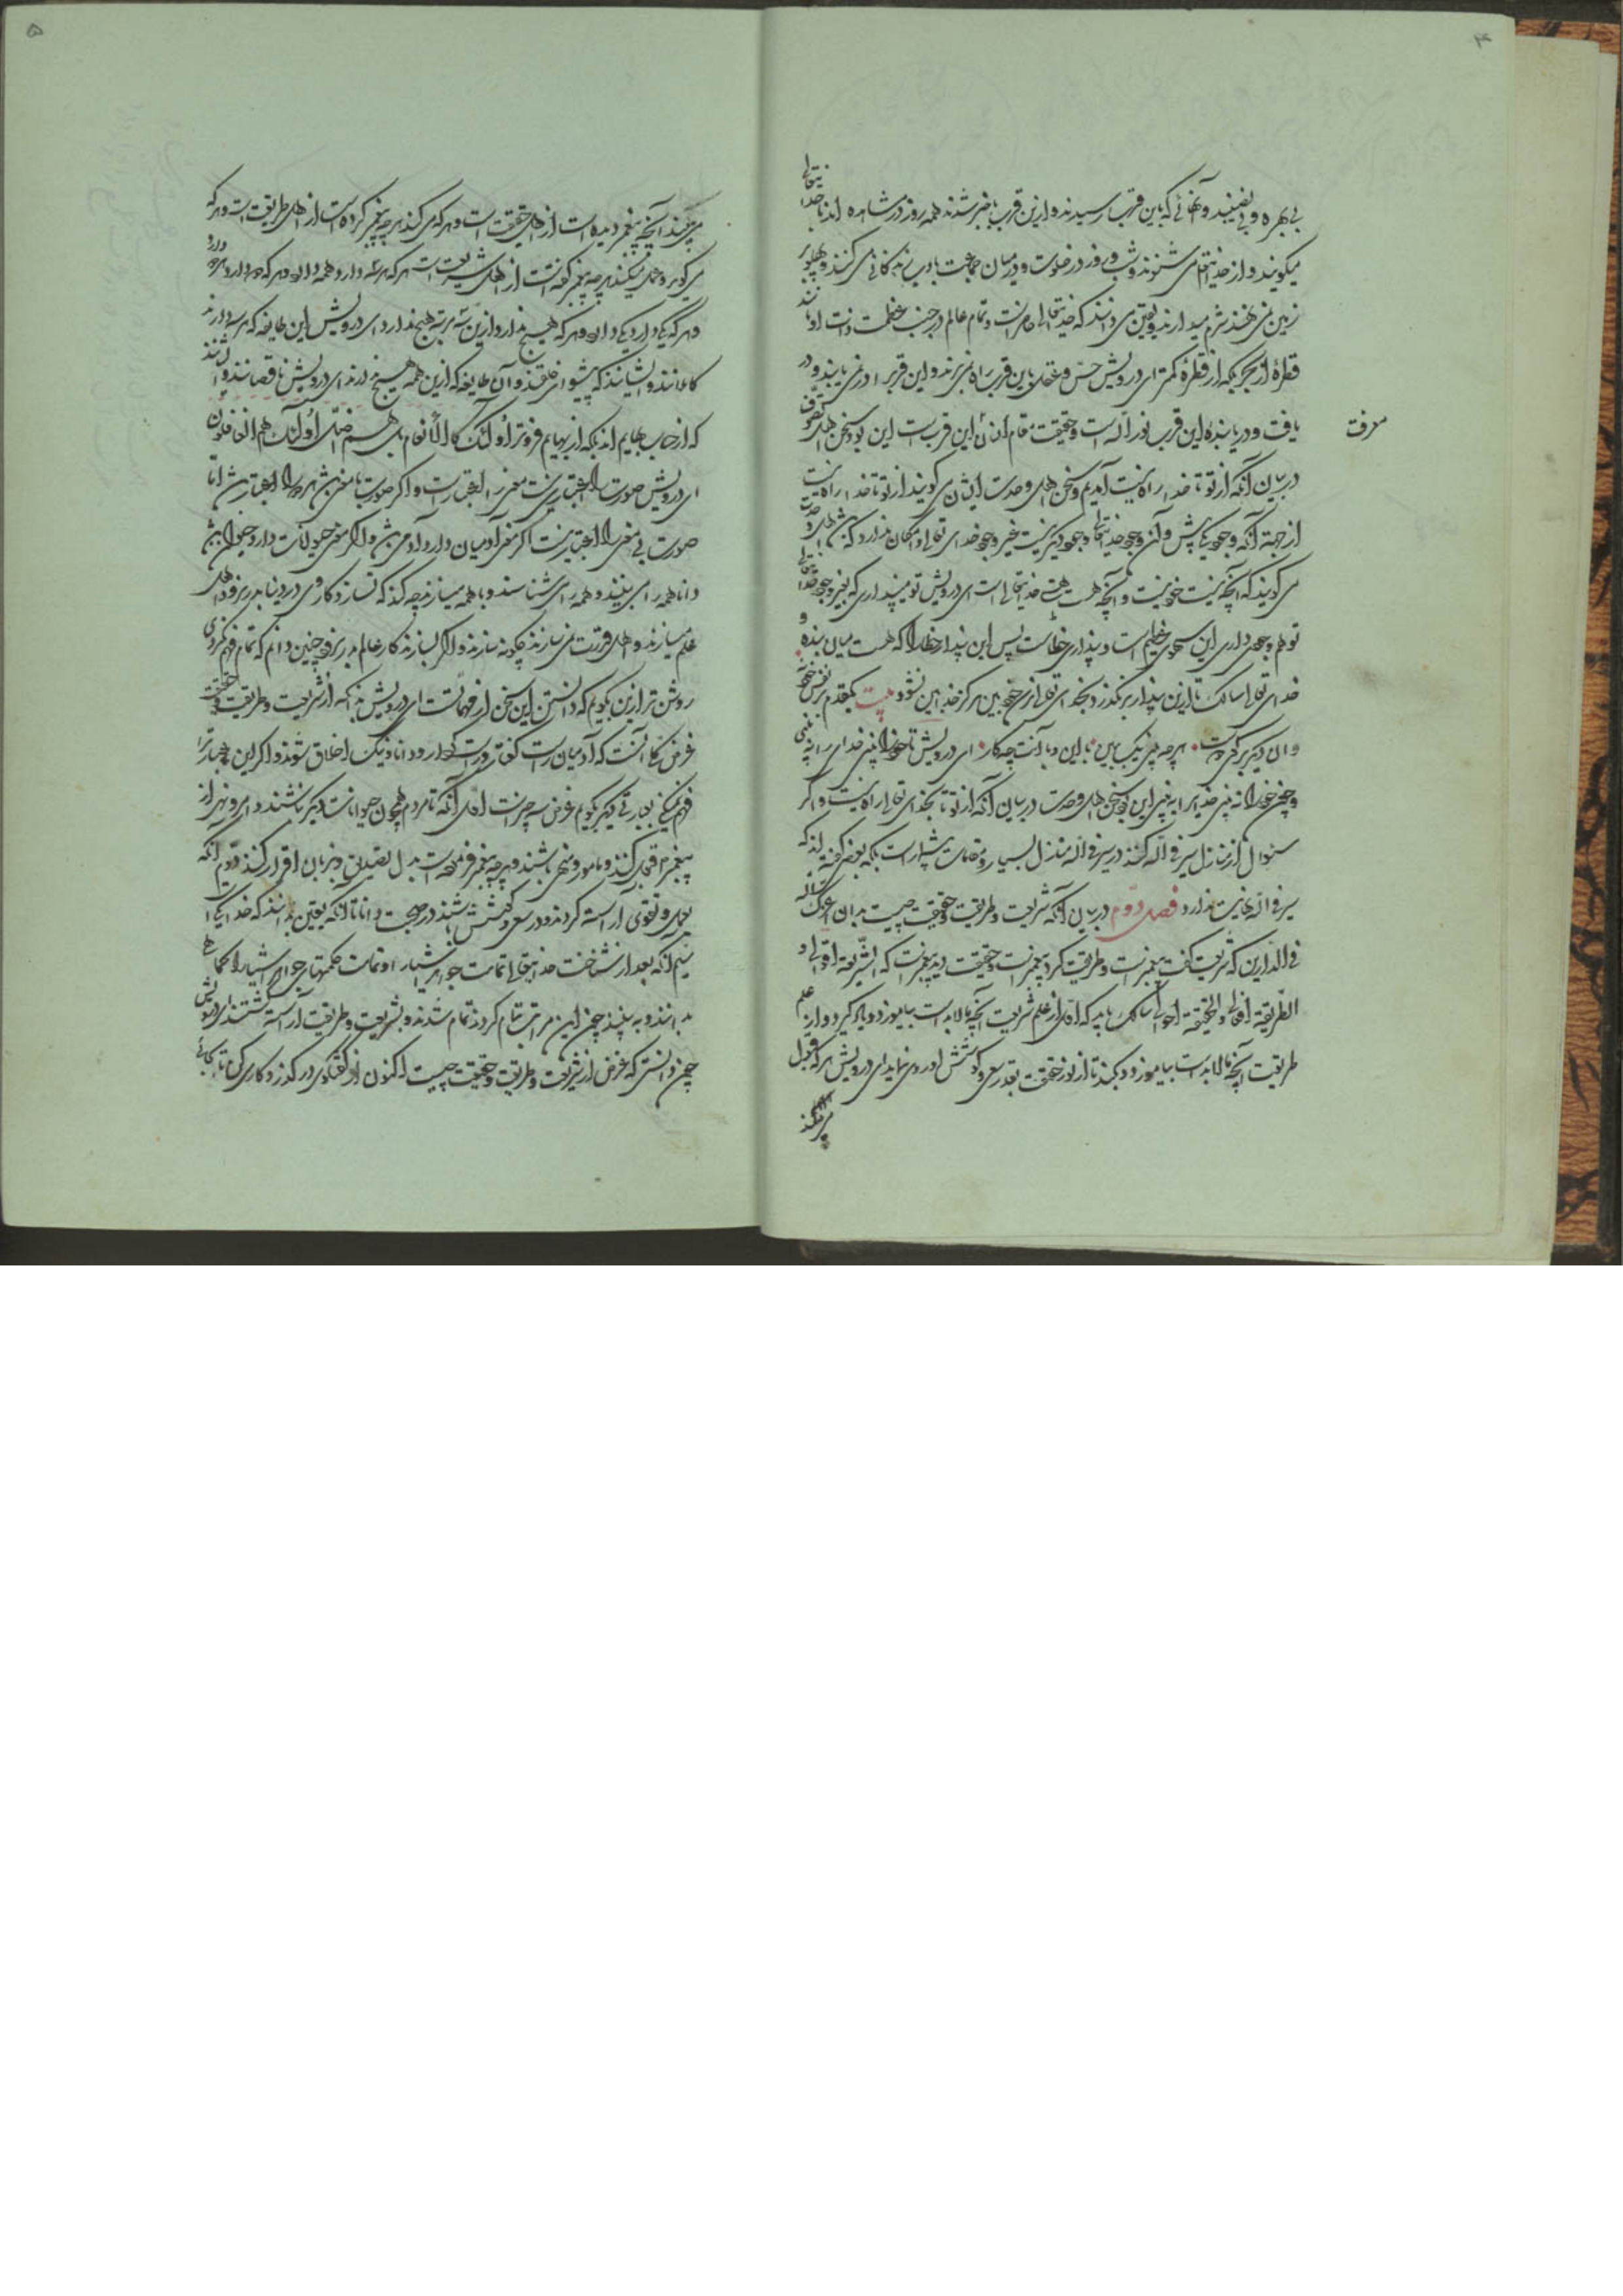 ۴
بی‌بهره و بی‌نصیبند و آنهائی که باین قرب رسیدند و ازین قرب باخبر شدند همه روز در مشاهده‌اند با خدایتعالی
میگویند و از خدایتعالی می‌شنوند و شب و روز در خلوت و در میان جماعت بادب زندگانی می‌کنند و پهلو بر
زمین نمی‌نهند شرم میدارند و بیقین می‌دانند که خدایتعالی حاضرست و تمام عالم در جنب عظمت ذات او مانند
قطرهٔ از بحر بلکه از قطرهٔ کمتر ای درویش حسّ و عقل باین قرب راه نمی‌برند و این قرب را در نمی‌یابند و در
یافت و دریابنده این قرب نور اله است و حقیقت مقام انسان این قرب است این بود سخن اهل تصوّف
معرفت
در بیان آنکه از تو تا خدا راه نیست آمدیم و سخن اهل وحدت ایشان می‌گویند از تو تا خدا راه نیست
از جهة آنکه وجود یکی بیش و آن وجود خدایتعالی وجود دیگر نیست غیر وجود خدای تعالی و امکان ندارد که باشد اهل وحدت
می‌گویند که آنچه نیست خود نیست و آنچه هست همه خدایتعالی است ای درویش تو میپنداری که بغیر وجود خدایتعالی
تو هم وجودی داری این سهوی عظیم است و پنداری خطاست پس این پندار خطا که هست میان بنده و
خدای تعالی سالک تا ازین پندار بر نگذرد بخدای تعالی نرسد خودبین هرگز خدابین نشود بیت یکقدم بر نفس خود نه
وان دگر بر کوی دوست هرچه بینی نیک بین با این و با آنت چه کار ای درویش تا خود را بینی خدای را نه بینی
و چون خود را نه بینی خدای را به بینی این بود سخن اهل وحدت در بیان آنکه از تو تا بخدای تعالی راه نیست و اگر
سئوال از منازل سیر فی اللّه کنند در سیر فی اللّه منازل بسیار و مقامات بیشمار است بلکه بعضی گفته‌اند که
سیر فی اللّه نهایت ندارد فصل دوّم در بیان آنکه شریعت و طریقت و حقیقت چیست بدان اعزک اللّه
فی الدّارین که شریعت گفت پیغمبرست و طریقت کرد پیغمبرست و حقیقت دید پیغمبرست که الشّریعة اقوالی و
الطّریقة افعالی و الحقیقة احوالی سالک باید که اوّل از علم شریعت آنچه مالابد است بیاموزد و یاد گیرد و از علم
طریقت آنچه مالابد است بیاموزد و بکند تا از نور حقیقت بقدر سعی و کوشش او روی نماید ای درویش هرکه قبول

۵
می‌بیند آنچه پیغمبر دیده است از اهل حقیقت است و هرکه می‌کند هرچه پیغمبر کرده است از اهل طریقت است و هرکه
می‌گوید و عمل میکند هرچه پیغمبر گفته است از اهل شریعت است هرکه هر سه دارد همه دارد و هرکه دو دارد دو دارد
و هرکه یکی دارد یکی دارد و هرکه هیچ ندارد ازین سه مرتبه هیچ ندارد ای درویش این طایفه که هر سه دارند
کاملانند و ایشانند که پیشوای خلقند و آن طایفه که ازین همه هیچ ندارند ای درویش ناقصانند و ایشانند
که از حساب بهایم‌اند بلکه از بهایم فروتر اولئک کالانعام بل هم اضلّ اولئک هم الغافلون
ای درویش صورت را اعتباری نیست معنی را اعتبارست و اگر صورت با معنی باشد هر دو را اعتبار باشد اما
صورت بی معنی را اعتبار نیست اگر معنی آدمیان دارد آدمی باشد و اگر معنی حیوانات دارد حیوان باشد
دانا همه را می‌بیند و همه را می‌شناسد و با همه میسازند چه کند که نسازد کار وی در دنیا بدر نرود اهل
علم میسازند و اهل قدرت نمی‌سازند چگونه سازند و اگر بسازند کار عالم بدر نرود چنین دانم که تمام فهم نکردی
روشن‌تر ازین بگویم که دانستن این سخن از مهمّات است ای درویش بدانکه از شریعت و طریقت و حقیقت
غرض کلی آنست که آدمیان راست گفتار و راست کردار و دانا و نیک اخلاق شوند و اگر این عبارت را
فهم نمیکنی بعبارتی دیگر بگویم غرض سه چیزست اوّل آنکه تا مردم همچون حیوانات دیگر نباشند و امر و نهی از
پیغمبر قبول کنند و مامور و منهی باشند و هرچه پیغمبر فرموده است بدل تصدیق و بزبان اقرار کنند دوّم آنکه
بعمل و تقوی آراسته گردند و در سعی و کوشش باشند در صحبت دانا تا آنکه بیقین بدانند که خدا یکیست
سیّم آنکه بعد از شناخت خدایتعالی تمامت جواهر اشیا را و تمامت حکمتهای جواهر اشیا را کماهی
بدانند و به بینند چون این مراتب تمام کردند تمام شدند و بشریعت و طریقت آراسته گشتند ای درویش
چون دانستی که غرض از شریعت و طریقت و حقیقت چیست اکنون از گفتگوی درگذر و کاری کن تا بجائی